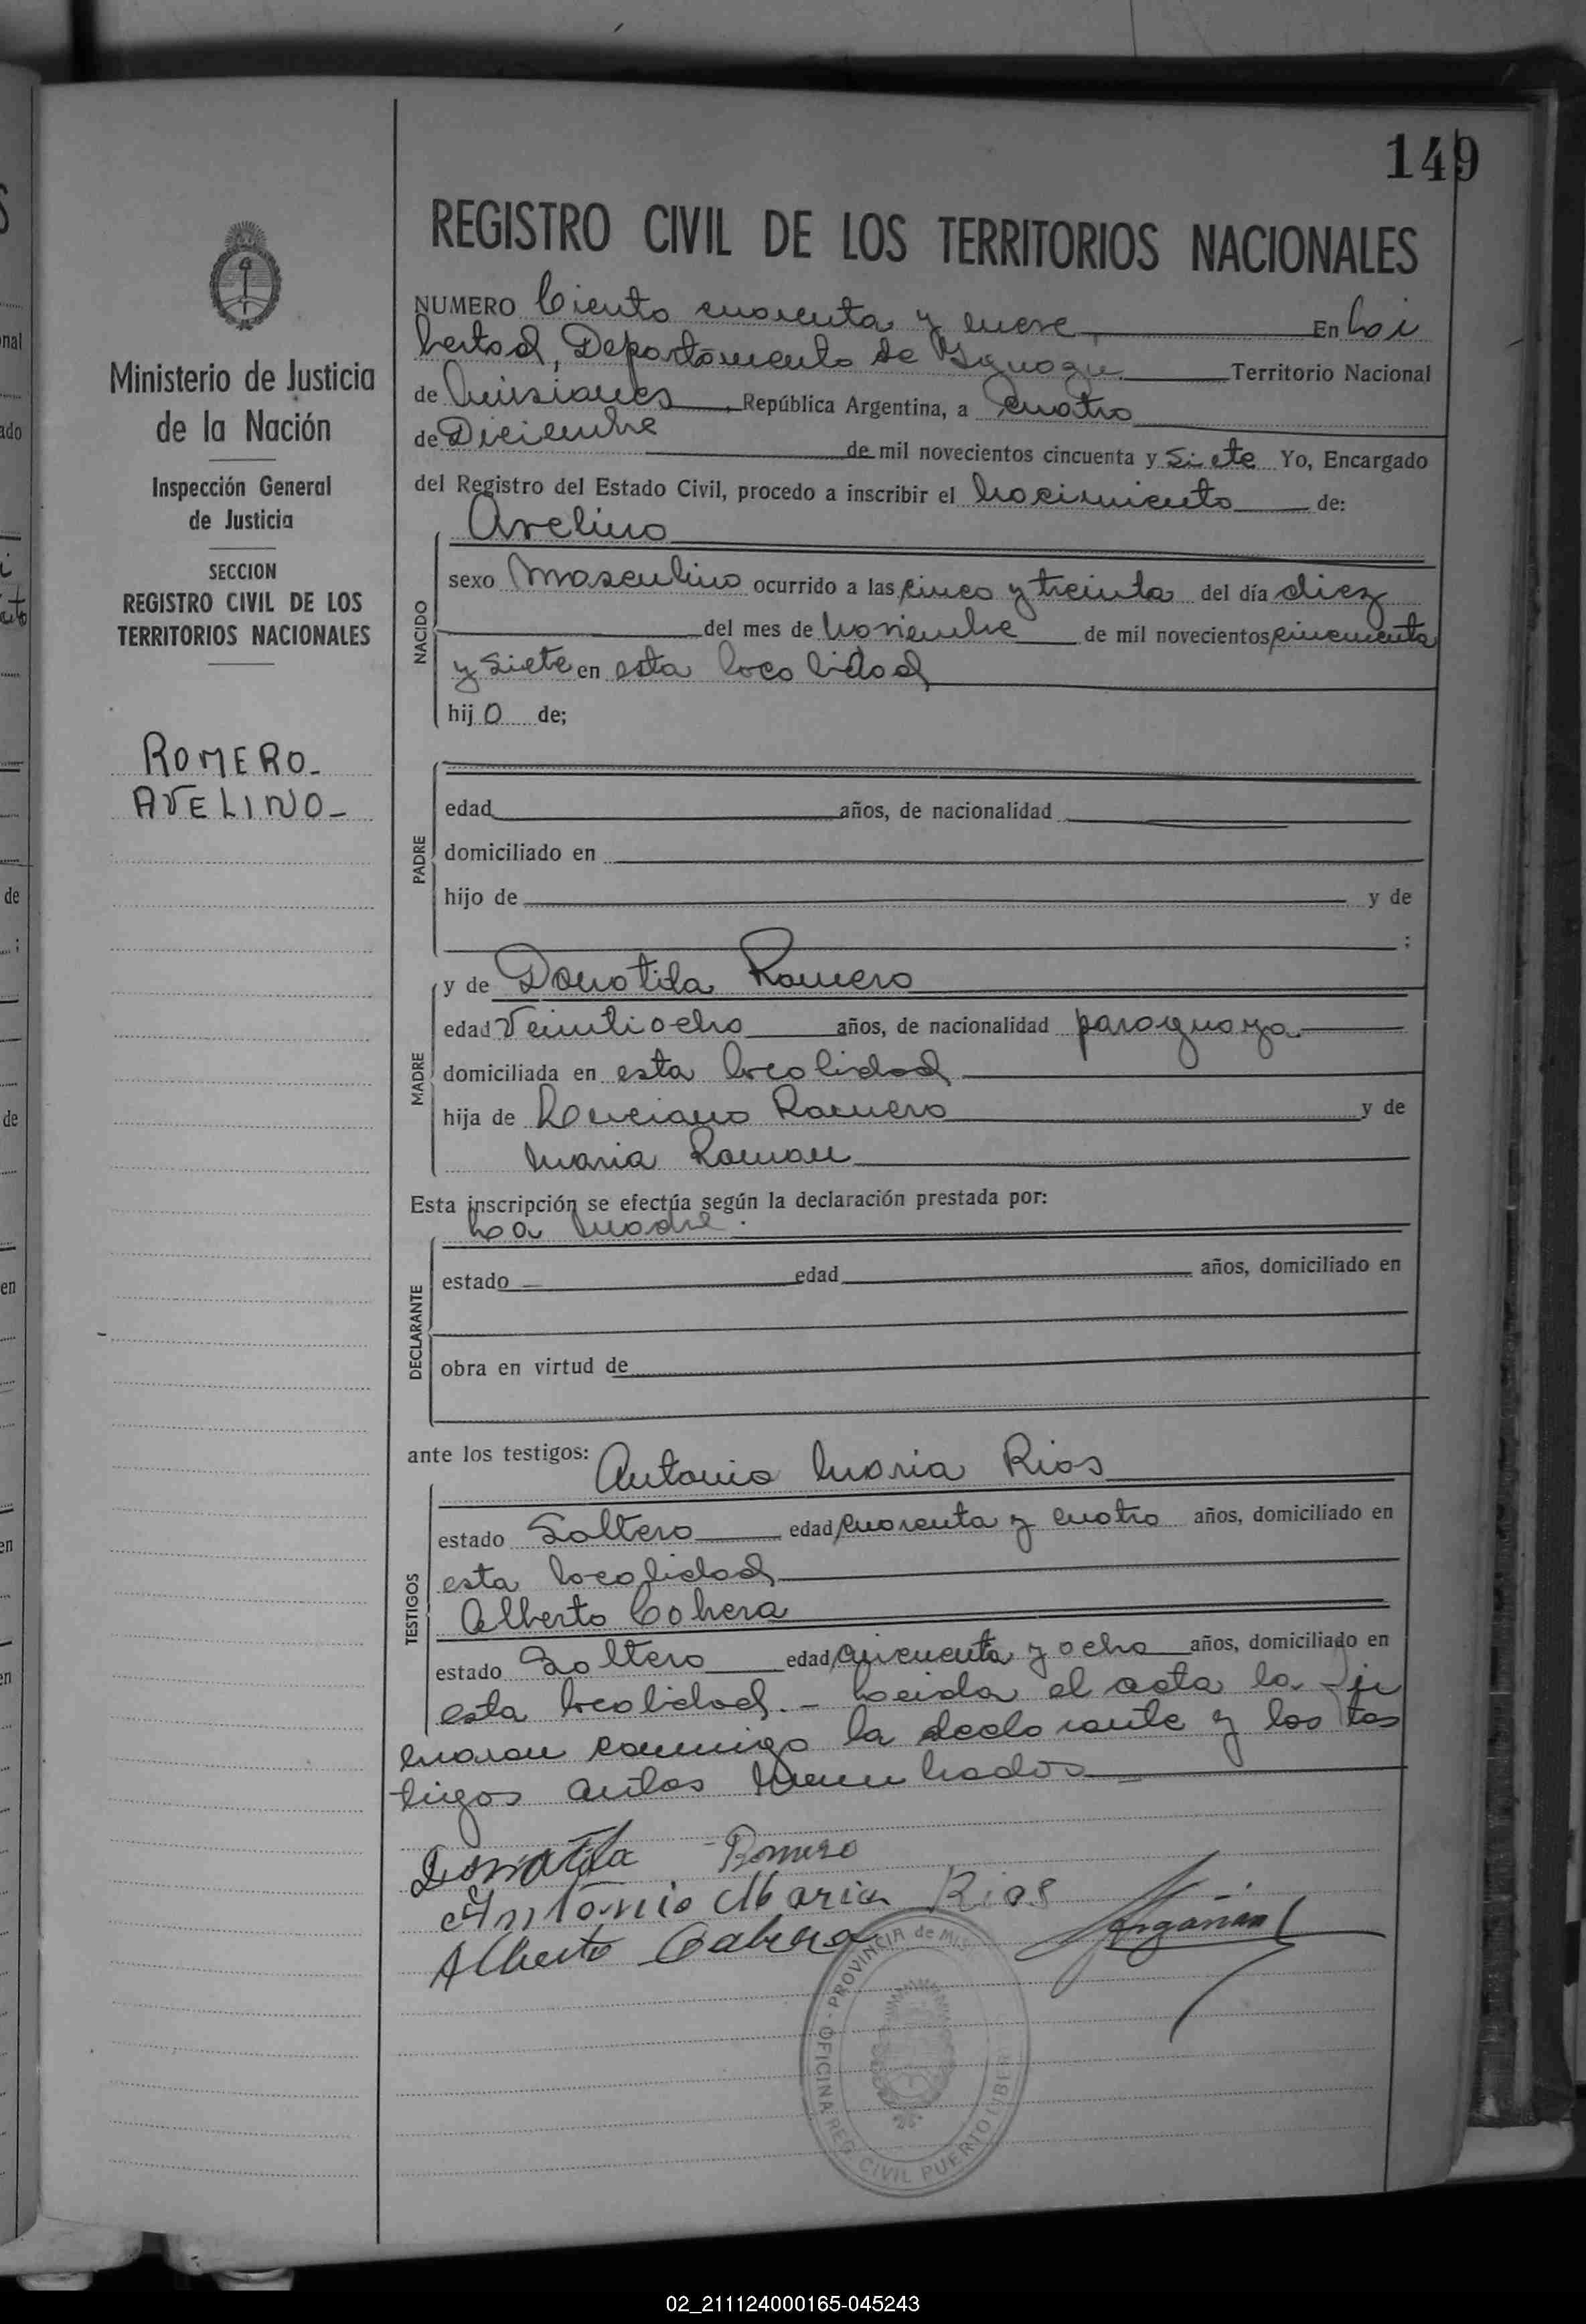 149
REGISTRO CIVIL DE LOS TERRITORIOS NACIONALES
Ministerio de Justicia
de la Nación
Inspección General
de Justicia
SECCION
REGISTRO CIVIL DE LOS
TERRITORIOS NACIONALES
ROMERO-
AVELINO-
NUMERO Ciento cuarenta y nueve En Li
bertad, Departamento de Yguazu Territorio Nacional
de Misiones, República Argentina, a cuatro
de Diciembre de mil novecientos cincuenta y siete Yo, Encargado
del Registro del Estado Civil, procedo a inscribir el nacimiento de:
NACIDO
Avelino
sexo masculino ocurrido a las cinco y treinta del día diez
del mes de noviembre de mil novecientos cincuenta
y siete en esta localidad
hijo de;
PADRE
edad años, de nacionalidad
domiciliado en
hijo de y de
;
MADRE
y de Donotila Romero
edad veintiocho años, de nacionalidad paraguaya.
domiciliada en esta localidad
hija de Luciano Romero y de
Maria Roman
Esta inscripción se efectúa según la declaración prestada por:
La madre.
DECLARANTE
estado edad años, domiciliado en
obra en virtud de
ante los testigos: Antonio Maria Rios
TESTIGOS
estado Soltero edad cuarenta y cuatro años, domiciliado en
esta localidad
Alberto Cabrera
estado Soltero edad cincuenta y ocho años, domiciliado en
esta localidad. - Leida el acta la fir
maron conmigo la declarante y los tes
tigos antes nombrados
Donotila Romero
Antonio Maria Rios
Alberto Cabrera
OFICINA REG. CIVIL PUERTO LIBER
PROVINCIA de MIS
02_211124000165-045243